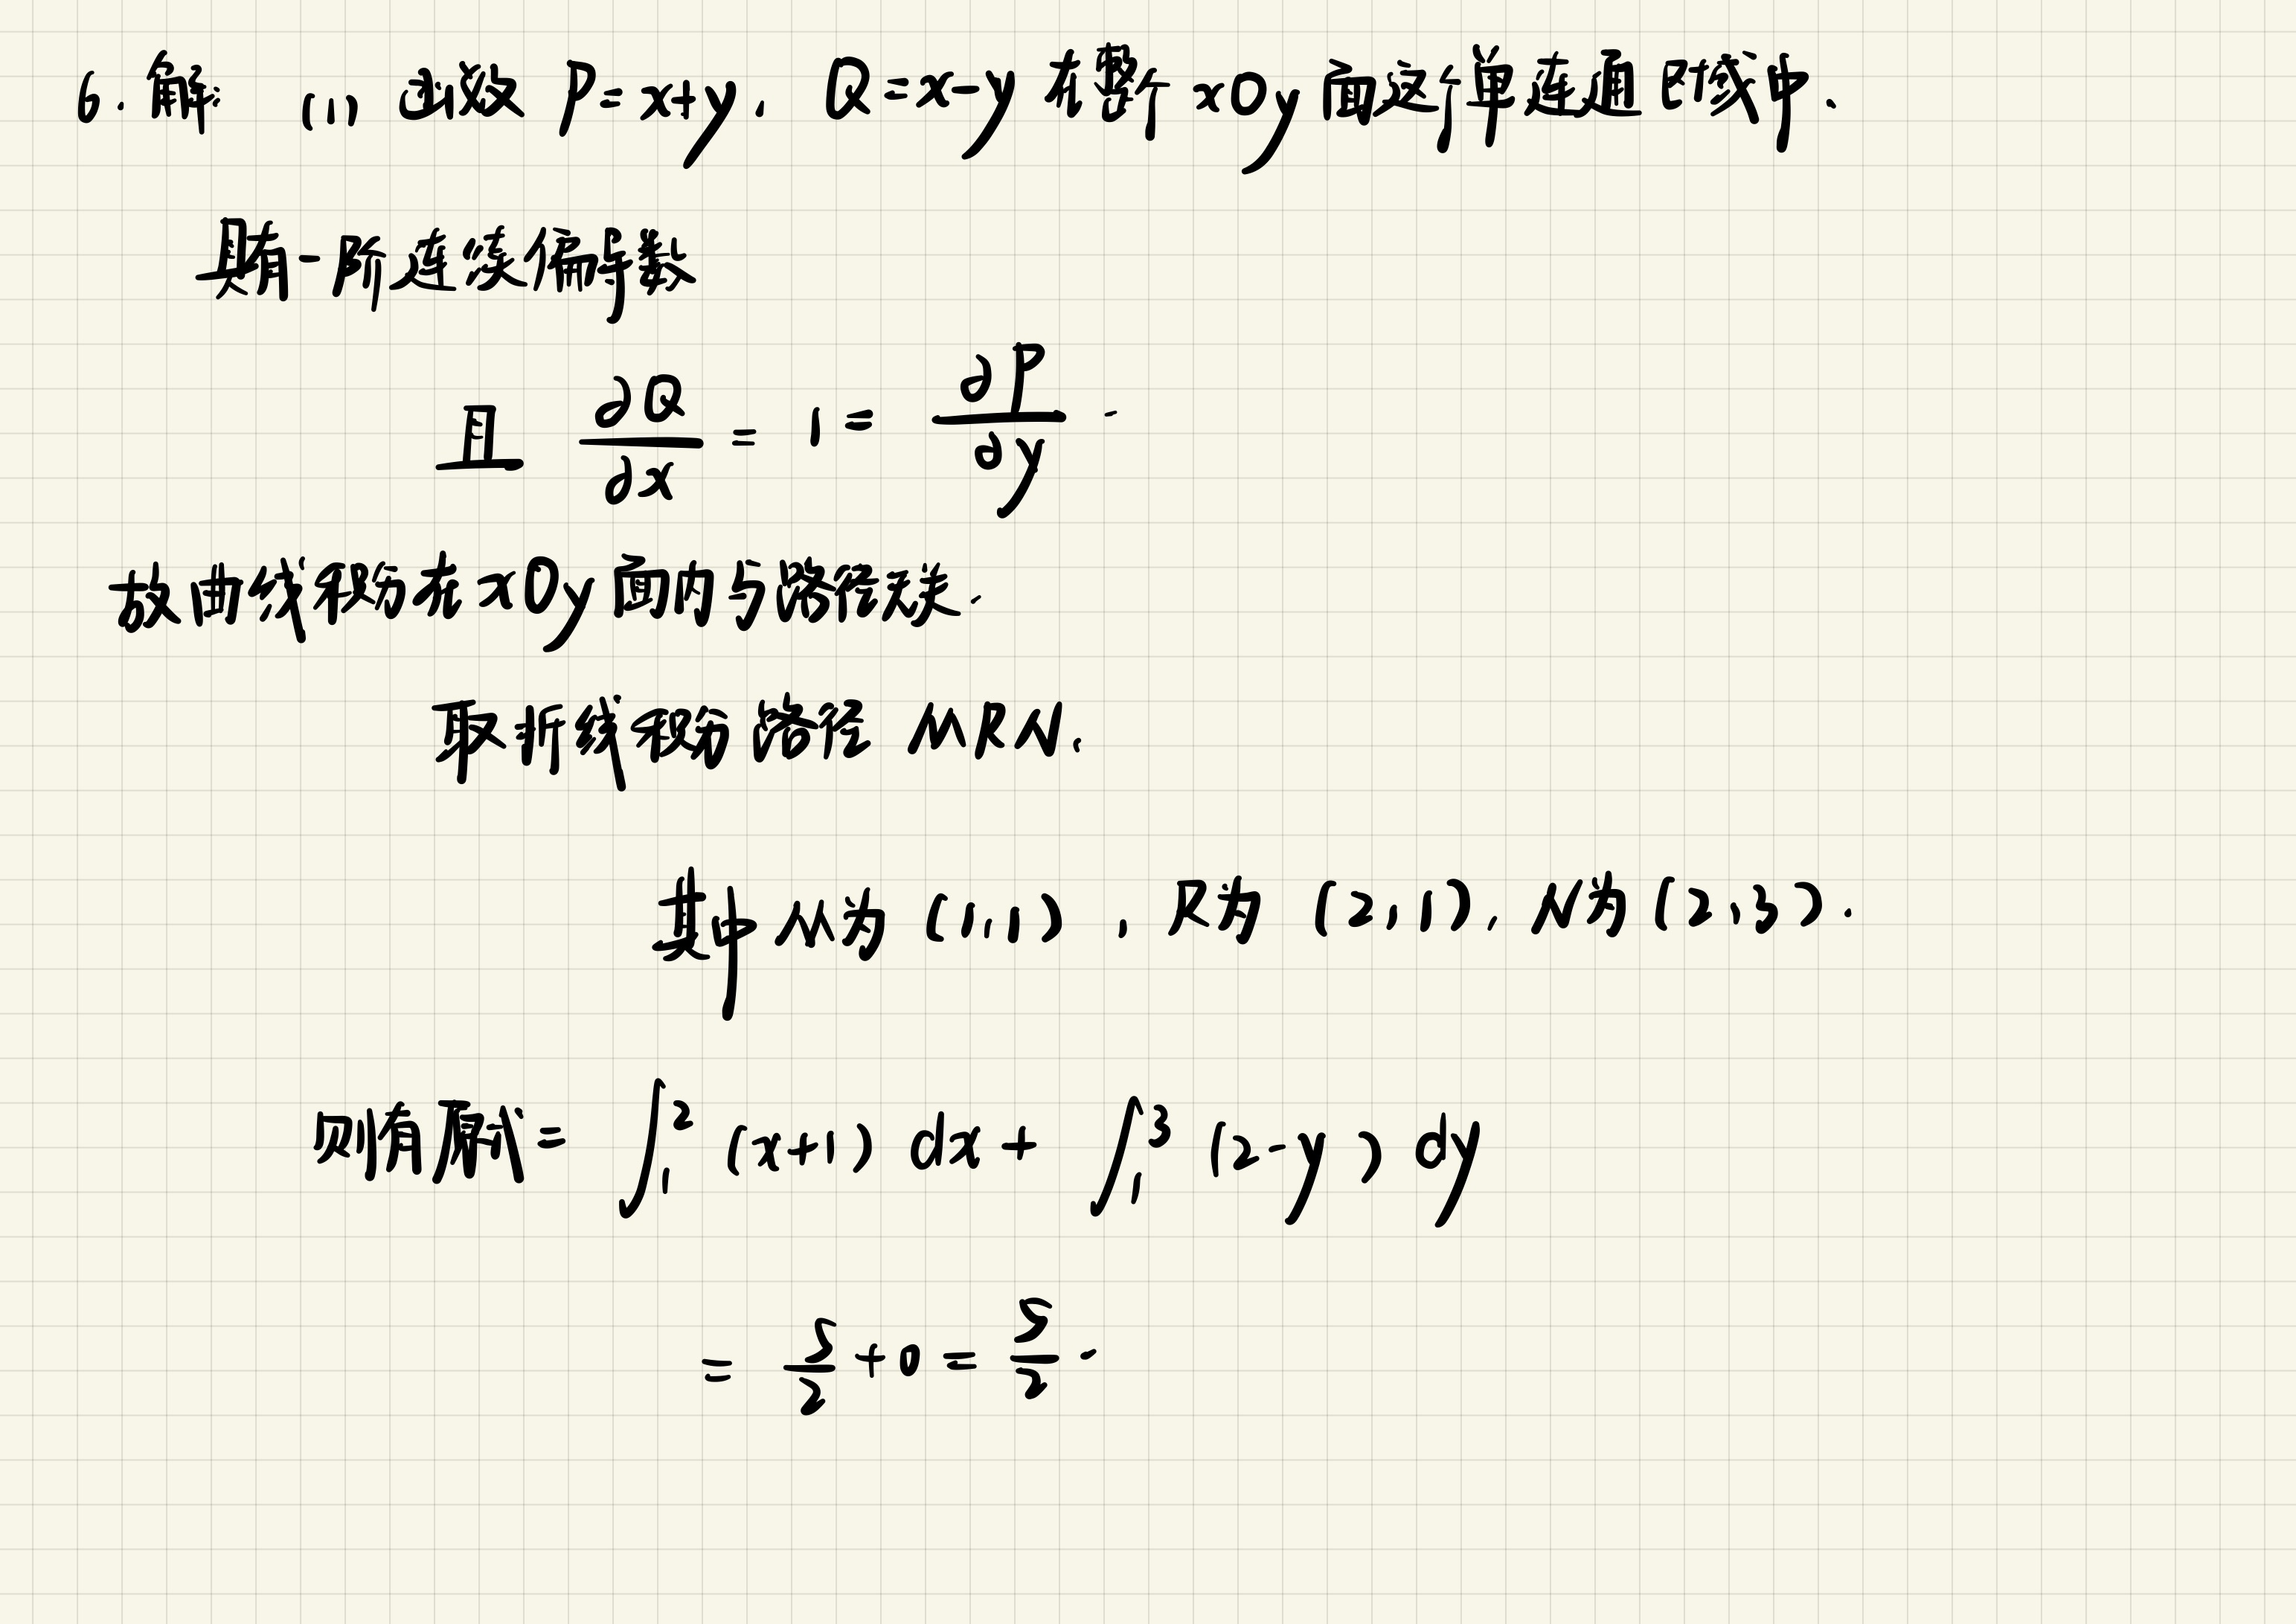 6. 解: (1) 函数 P=x+y, Q=x-y 在整个 xOy 面这个单连通区域中,
具有一阶连续偏导数
且 ∂Q/∂x = 1 = ∂P/∂y.
故曲线积分在 xOy 面内与路径无关.
取折线积分路径 MRN.
其中 M为 (1,1), R为 (2,1), N为 (2,3).
则有原式 = ∫₁² (x+1) dx + ∫₁³ (2-y) dy
= 5/2 + 0 = 5/2.